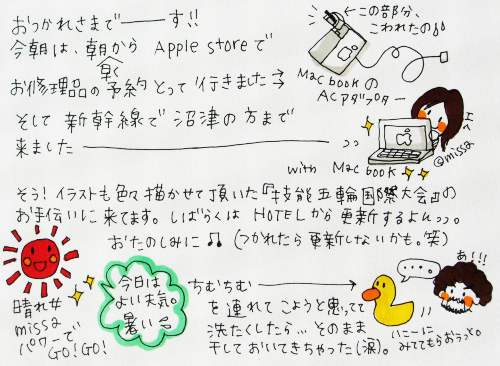 おつかれさまでーーーす!!
今朝は、朝から Apple storeで
早く
お修理品の予約とって行きました→
←この部分、
こわれたの♪♪
Mac bookの
ACアダプター
そして 新幹線で 沼津の方まで
来ました
with Mac book
@missa
そう!イラストも色々描かせて頂いた『技能五輪国際大会』の
お手伝いに来てます。しばらくは HOTELから更新するよん♪♪。
おたのしみに♫ (つかれたら更新しないかも。笑)
晴れ女
missa
パワーで
GO!GO!
今日は
よい天気。
暑い
ちむちむ
を連れてこようと思って
洗たくしたら…そのまま
干しておいてきちゃった(涙)。
・・・・
あ!!!
いこーに
みててもらおうっと。